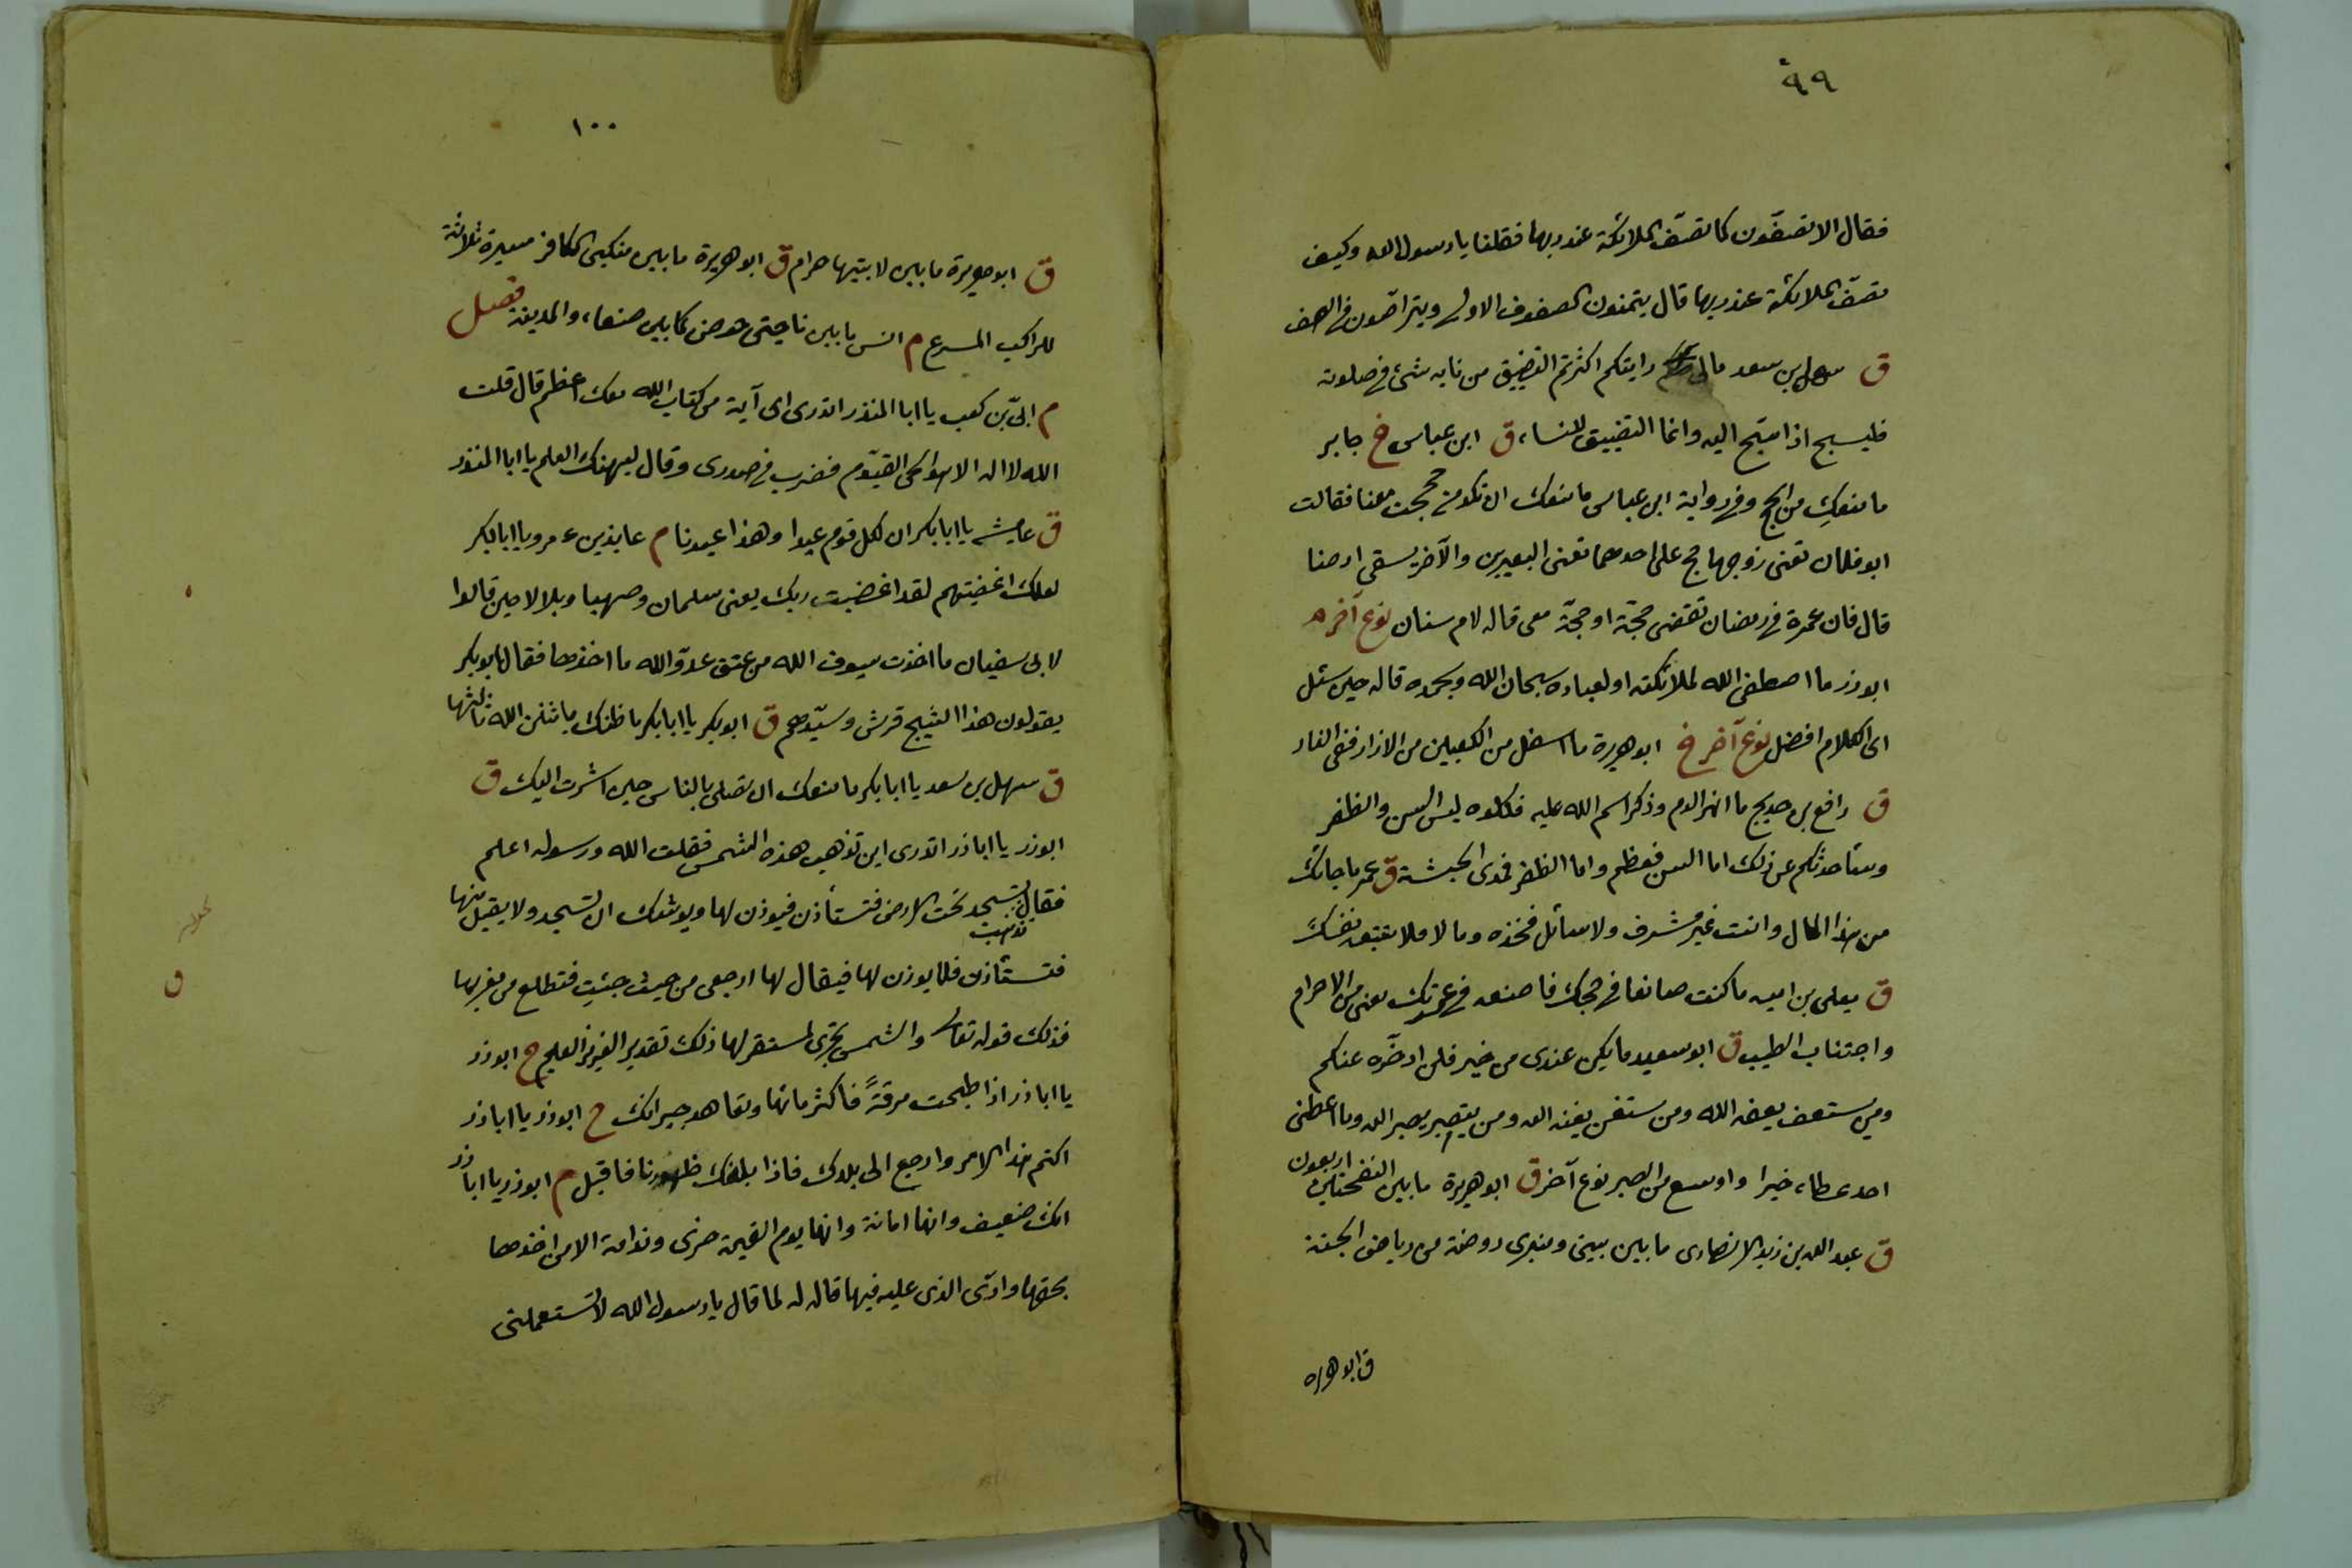 ٩٩
فقال الا تصفّون كما تصفّ الملائكة عند ربها فقلنا يا رسول الله وكيف
تصفّ الملائكة عند ربها قال يتمّون الصفوف الاولى ويتراصّون فى الصف
ق سهل بن سعد مالى رايتكم اكثرتم التصفيق من نابه شئ فى صلوته
فليسبح اذا سبّح اليه وانما التصفيق للنساء ق ابن عباس خ جابر
ما منعكِ من الحج وفى رواية ابن عباس ما منعك ان تكونى حججت معنا فقالت
ابو فلان تعنى زوجها حج على احدهما تعنى البعيرين والآخر يسقى ارضنا
قال فان عمرة فى رمضان تقضى حجّة او حجّة معى قاله لام سنان نوع آخر م
ابو ذر ما اصطفى الله لملائكته او لعباده سبحان الله وبحمده قاله حين سئل
اى الكلام افضل نوع آخر خ ابو هريرة ما اسفل من الكعبين من الازار ففى النار
ق رافع بن خديج ما انهر الدم وذكر اسم الله عليه فكلوه ليس السن والظفر
وسأحدثكم عن ذلك اما السن فعظم واما الظفر فمدى الحبشة ق عمر ما جاءك
من هذا المال وانت غير مشرف ولا سائل فخذه وما لا فلا تتبعه نفسك
ق يعلى بن اميه ما كنت صانعا فى حجك فاصنعه فى عمرتك يعنى من الاحرام
واجتناب الطيب ق ابو سعيد ما يكن عندى من خير فلن ادخّره عنكم
ومن يستعف يعفه الله ومن يستغن يغنه الله ومن يتصبر يصبره الله وما اعطى
احد عطاء خيرا واوسع من الصبر نوع آخر ق ابو هريرة ما بين النفختين اربعون
ق عبد الله بن زيد الانصارى ما بين بيتى ومنبرى روضة من رياض الجنة
ق ابو هريرة
١٠٠
ق ابو هريرة ما بين لابتيها حرام ق ابو هريرة ما بين منكبى الكافر مسيرة ثلاثة
للراكب المسرع م انس ما بين ناحيتى حوضى كما بين صنعاء والمدينة فصل
م ابىّ بن كعب يا ابا المنذر اتدرى اى آية من كتاب الله معك اعظم قال قلت
الله لا اله الا هو الحى القيّوم فضرب فى صدرى وقال ليهنك العلم يا ابا المنذر
ق عايشه يا ابا بكر ان لكل قوم عيدا وهذا عيدنا م عايذ بن عمرو يا ابا بكر
لعلك اغضبتهم لقد اغضبت ربك يعنى سلمان وصهيبا وبلالا حين قالوا
لابى سفيان ما اخذت سيوف الله من عنق عدوّ الله ما اخذها فقال ابو بكر
يقولون هذا الشيخ قرش وسيّدهم ق ابو بكر يا ابا بكر ما ظنك باثنين الله ثالثها
ق سهل بن سعد يا ابا بكر ما منعك ان تصلى بالناس حين اشرت اليك ق
ابو ذر يا ابا ذر اتدرى اين تذهب هذه الشمس فقلت الله ورسوله اعلم
فقال تذهب تسجد تحت الارض فتستأذن فيوذن لها ويوشك ان تسجد ولا يقبل منها
فتستأذن فلا يوذن لها فيقال لها ارجعى من حيث جئتِ فتطلع من مغربها
فذلك قوله تعالى والشمس تجرى لمستقر لها ذلك تقدير العزيز العليم م ابو ذر
يا ابا ذر اذا طبخت مرقةً فاكثر مائها وتعاهد جيرانك خ ابو ذر يا ابا ذر
اكتم هذا الامر وارجع الى بلدك فاذا بلغك ظهورنا فاقبل م ابو ذر يا ابا ذر
انك ضعيف وانها امانة وانها يوم القيمة خزى وندامة الا من اخذها
بحقها وادّى الذى عليه فيها قاله له لما قال يا رسول الله لا تستعملنى
ق